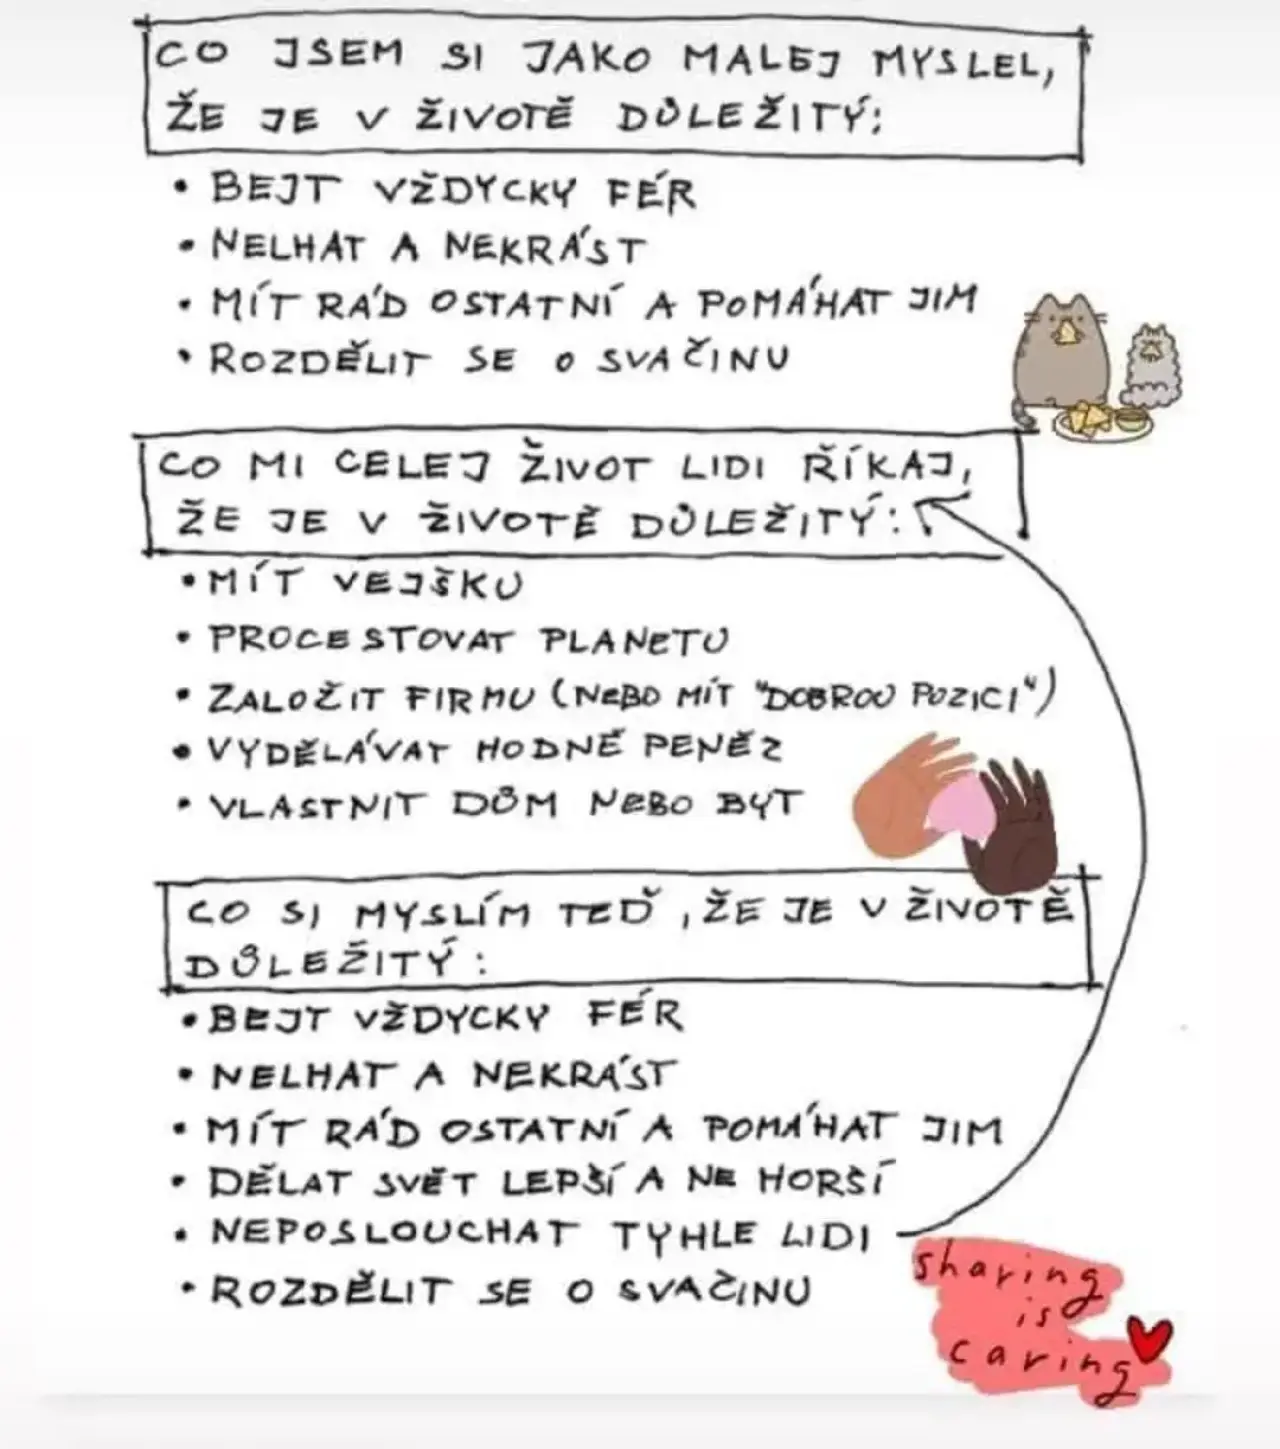 CO JSEM SI JAKO MALEJ MYSLEL,
ŽE JE V ŽIVOTĚ DŮLEŽITÝ:
• BEJT VŽDYCKY FÉR
• NELHAT A NEKRÁST
• MÍT RÁD OSTATNÍ A POMÁHAT JIM
• ROZDĚLIT SE O SVAČINU
CO MI CELEJ ŽIVOT LIDI ŘÍKAJ,
ŽE JE V ŽIVOTĚ DŮLEŽITÝ:
• MÍT VEJŠKU
• PROCESTOVAT PLANETU
• ZALOŽIT FIRMU (NEBO MÍT "DOBROU POZICI")
• VYDĚLÁVAT HODNĚ PENĚZ
• VLASTNIT DŮM NEBO BYT
CO SI MYSLÍM TEĎ, ŽE JE V ŽIVOTĚ
DŮLEŽITÝ:
• BEJT VŽDYCKY FÉR
• NELHAT A NEKRÁST
• MÍT RÁD OSTATNÍ A POMÁHAT JIM
• DĚLAT SVĚT LEPŠÍ A NE HORŠÍ
• NEPOSLOUCHAT TYHLE LIDI
• ROZDĚLIT SE O SVAČINU
sharing
is
caring